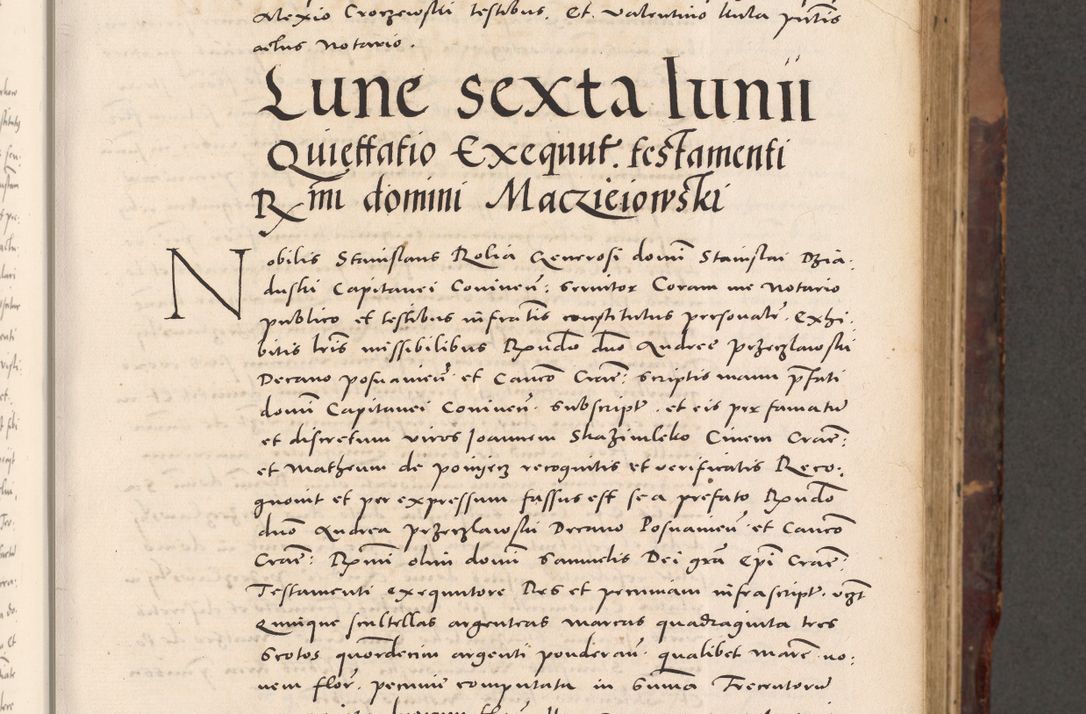 Alexio Croczewski testibus. Et. Valentino
actus notario.
Lune sexta Iunii
Quiettatio Exequut. testamenti
Rmi domini Maczieiowski
Nobilis Stanislaus Rolia Generosi domi Stanislai Dzia-
duski Capitanei Coninen: servitor Coram me Notario
publico et testibus infratis constitutus personalr. Exhi-
bitis lris missibilibus Rxndo dno Andree Przeczlawski
Decano posnanien et Canco Crac: scriptis manu pfati
domi Capitanei Coninen. subscript. et eis per famatu
et discretum viros Joannem Skazimleko Civem Crac:
et Matheum de poniecz recognitis et verificatis Reco-
gnovit et per expressum fassus est se a prefato Rxndo
dno Andrea Przeczlawski Decano Posnanien et Canco
Crac: Rxmi olim domi Samuelis Dei gra Epi Crac:
Testamenti exequutore Res et pecuniam infrascript. vzt
Quinque scultellas argenteas marcas quadraginta tres
Scotos quordecim argenti ponderan. qualibet marc no-
nem flor. pecunie computata in Suma Trecentoru